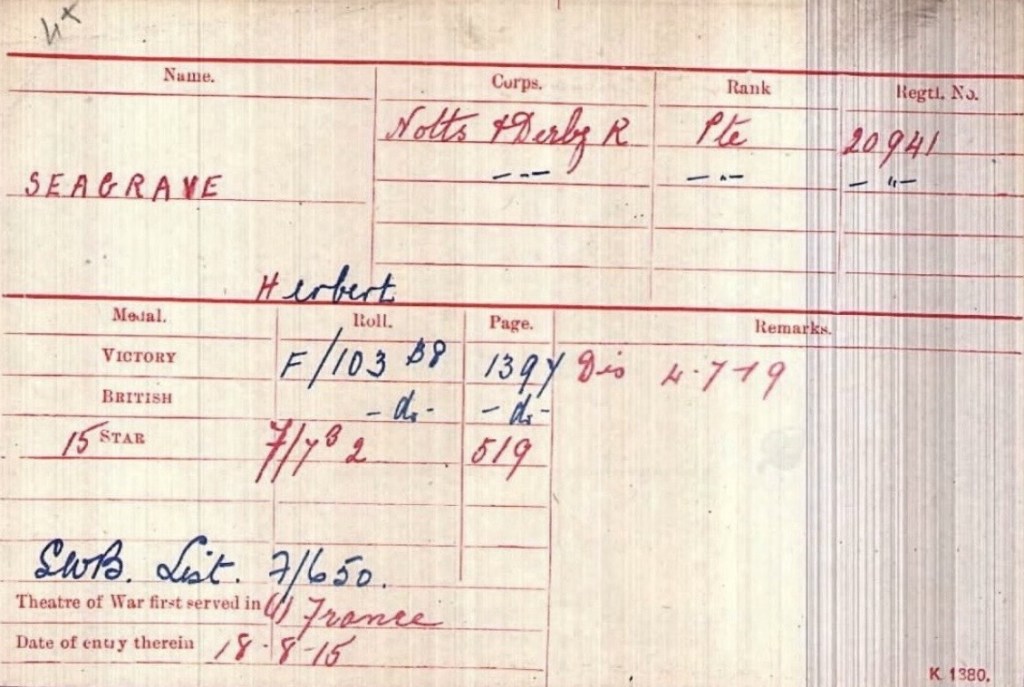 4x
Name. Corps. Rank Regtl. No.
Notts & Derby R Pte 20941
SEAGRAVE -"- -"- -"-
Herbert
Medal. Roll. Page. Remarks.
VICTORY F/103 B8 1394 Dis 4-7-19
BRITISH -do- -do-
15 STAR F/7 B 2 519
SWB. List. F/650.
Theatre of War first served in (1) France
Date of entry therein 18-8-15
K 1380.